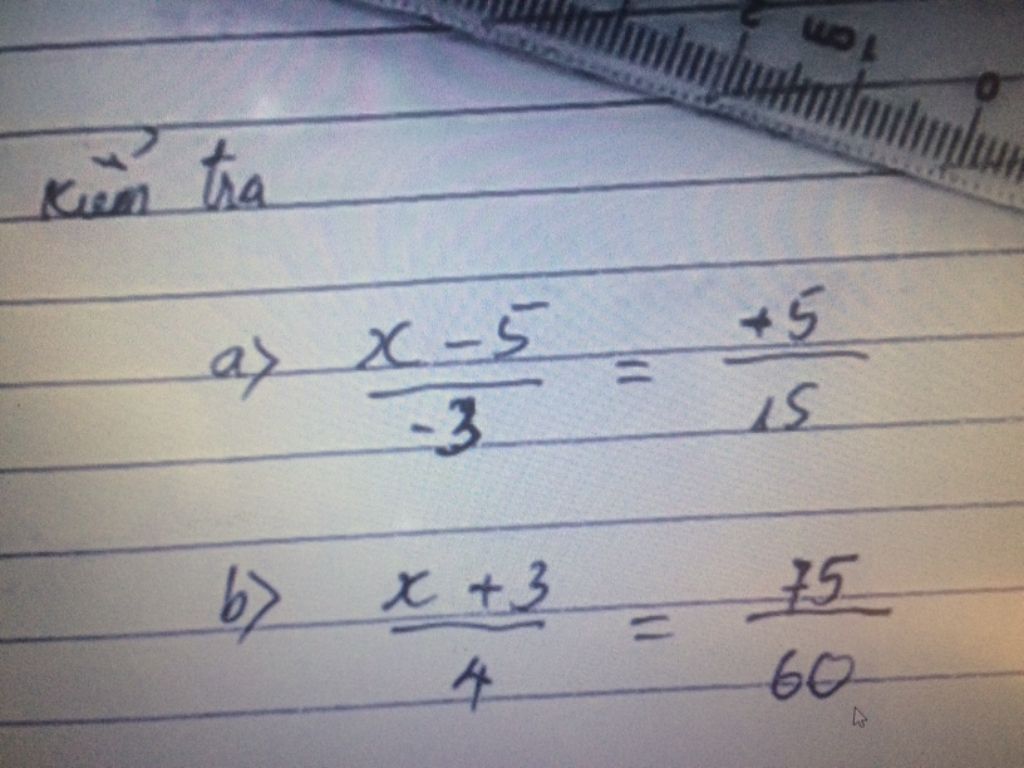 2 1 cm 0
Kiểm tra
a) x - 5 / -3 = +5 / 15
b) x + 3 / 4 = 75 / 60